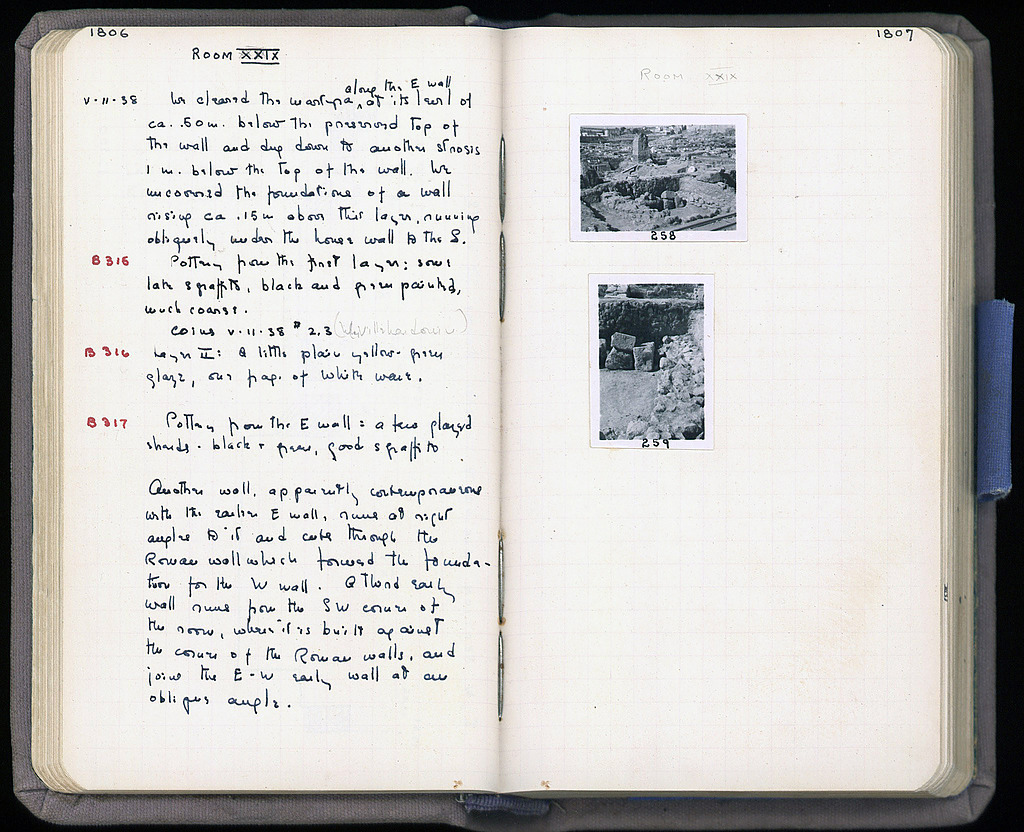 1806
ROOM XXIX
along the E wall
V·11·38 We cleared the martyra, at its level of
ca. .50 m. below the preserved top of
the wall and dug down to another strosis
1 m. below the top of the wall. We
uncovered the foundations of a wall
rising ca .15 m above this layer, running
obliquely under the house wall to the S.
B 315 Pottery from the first layer: some
late sgraffito, black and green painted,
much coarse.
Coins V·11·38 # 2,3
B 316 Layer II: a little plain yellow-green
glaze, one frag. of white ware.
B 317 Pottery from the E wall: a few glazed
sherds - black + green, good sgraffito
Another wall, apparently contemporaneous
with the earlier E wall, runs at right
angles to it and cuts through the
Roman wall which formed the founda-
tion for the W wall. A third early
wall runs from the SW corner of
the room, where it is built against
the corner of the Roman walls, and
joins the E-W early wall at an
oblique angle.
1807
ROOM XXIX
258
259